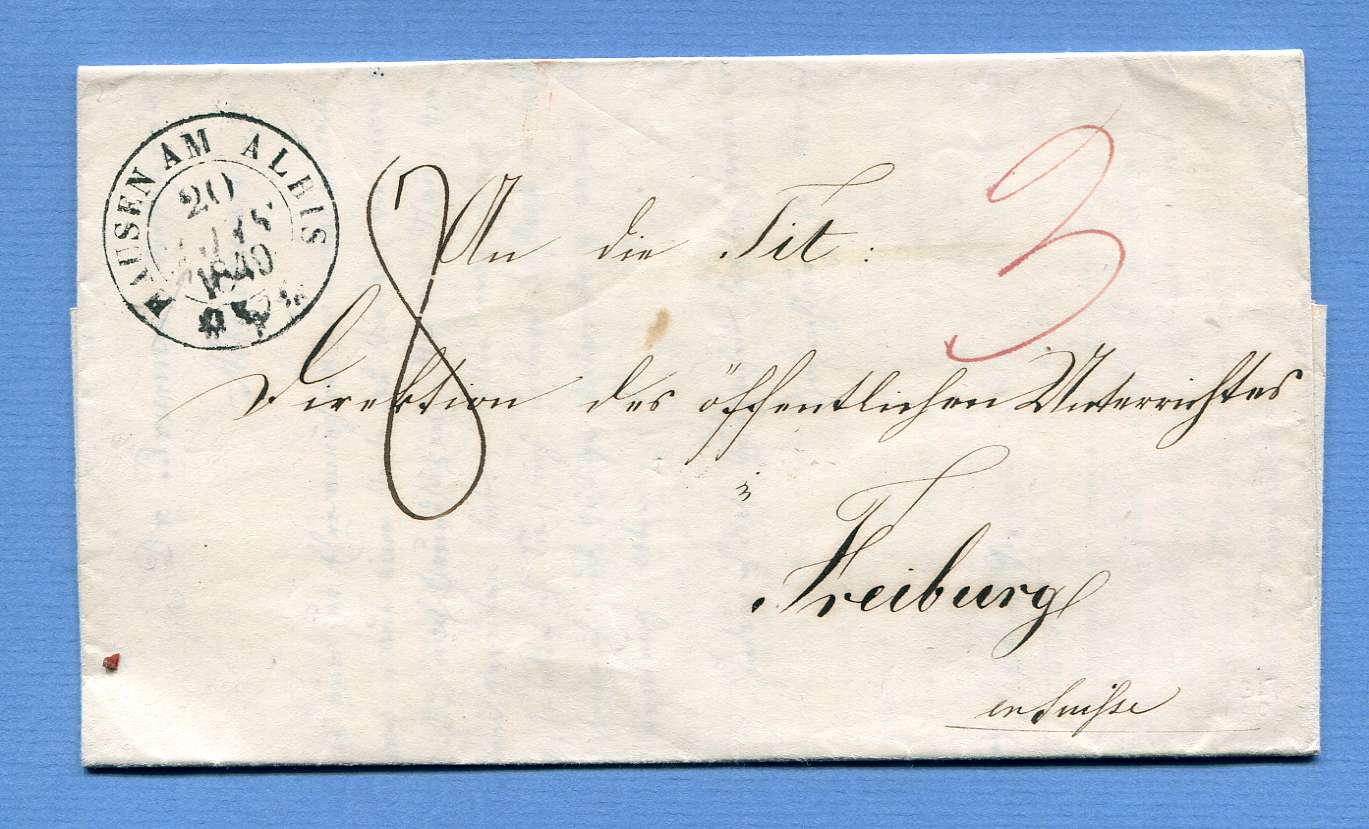 HAUSEN AM ALBIS
20
1849
8
3
An die Tit:
Direktion des öffentlichen Unterrichtes
Freiburg
en Suisse